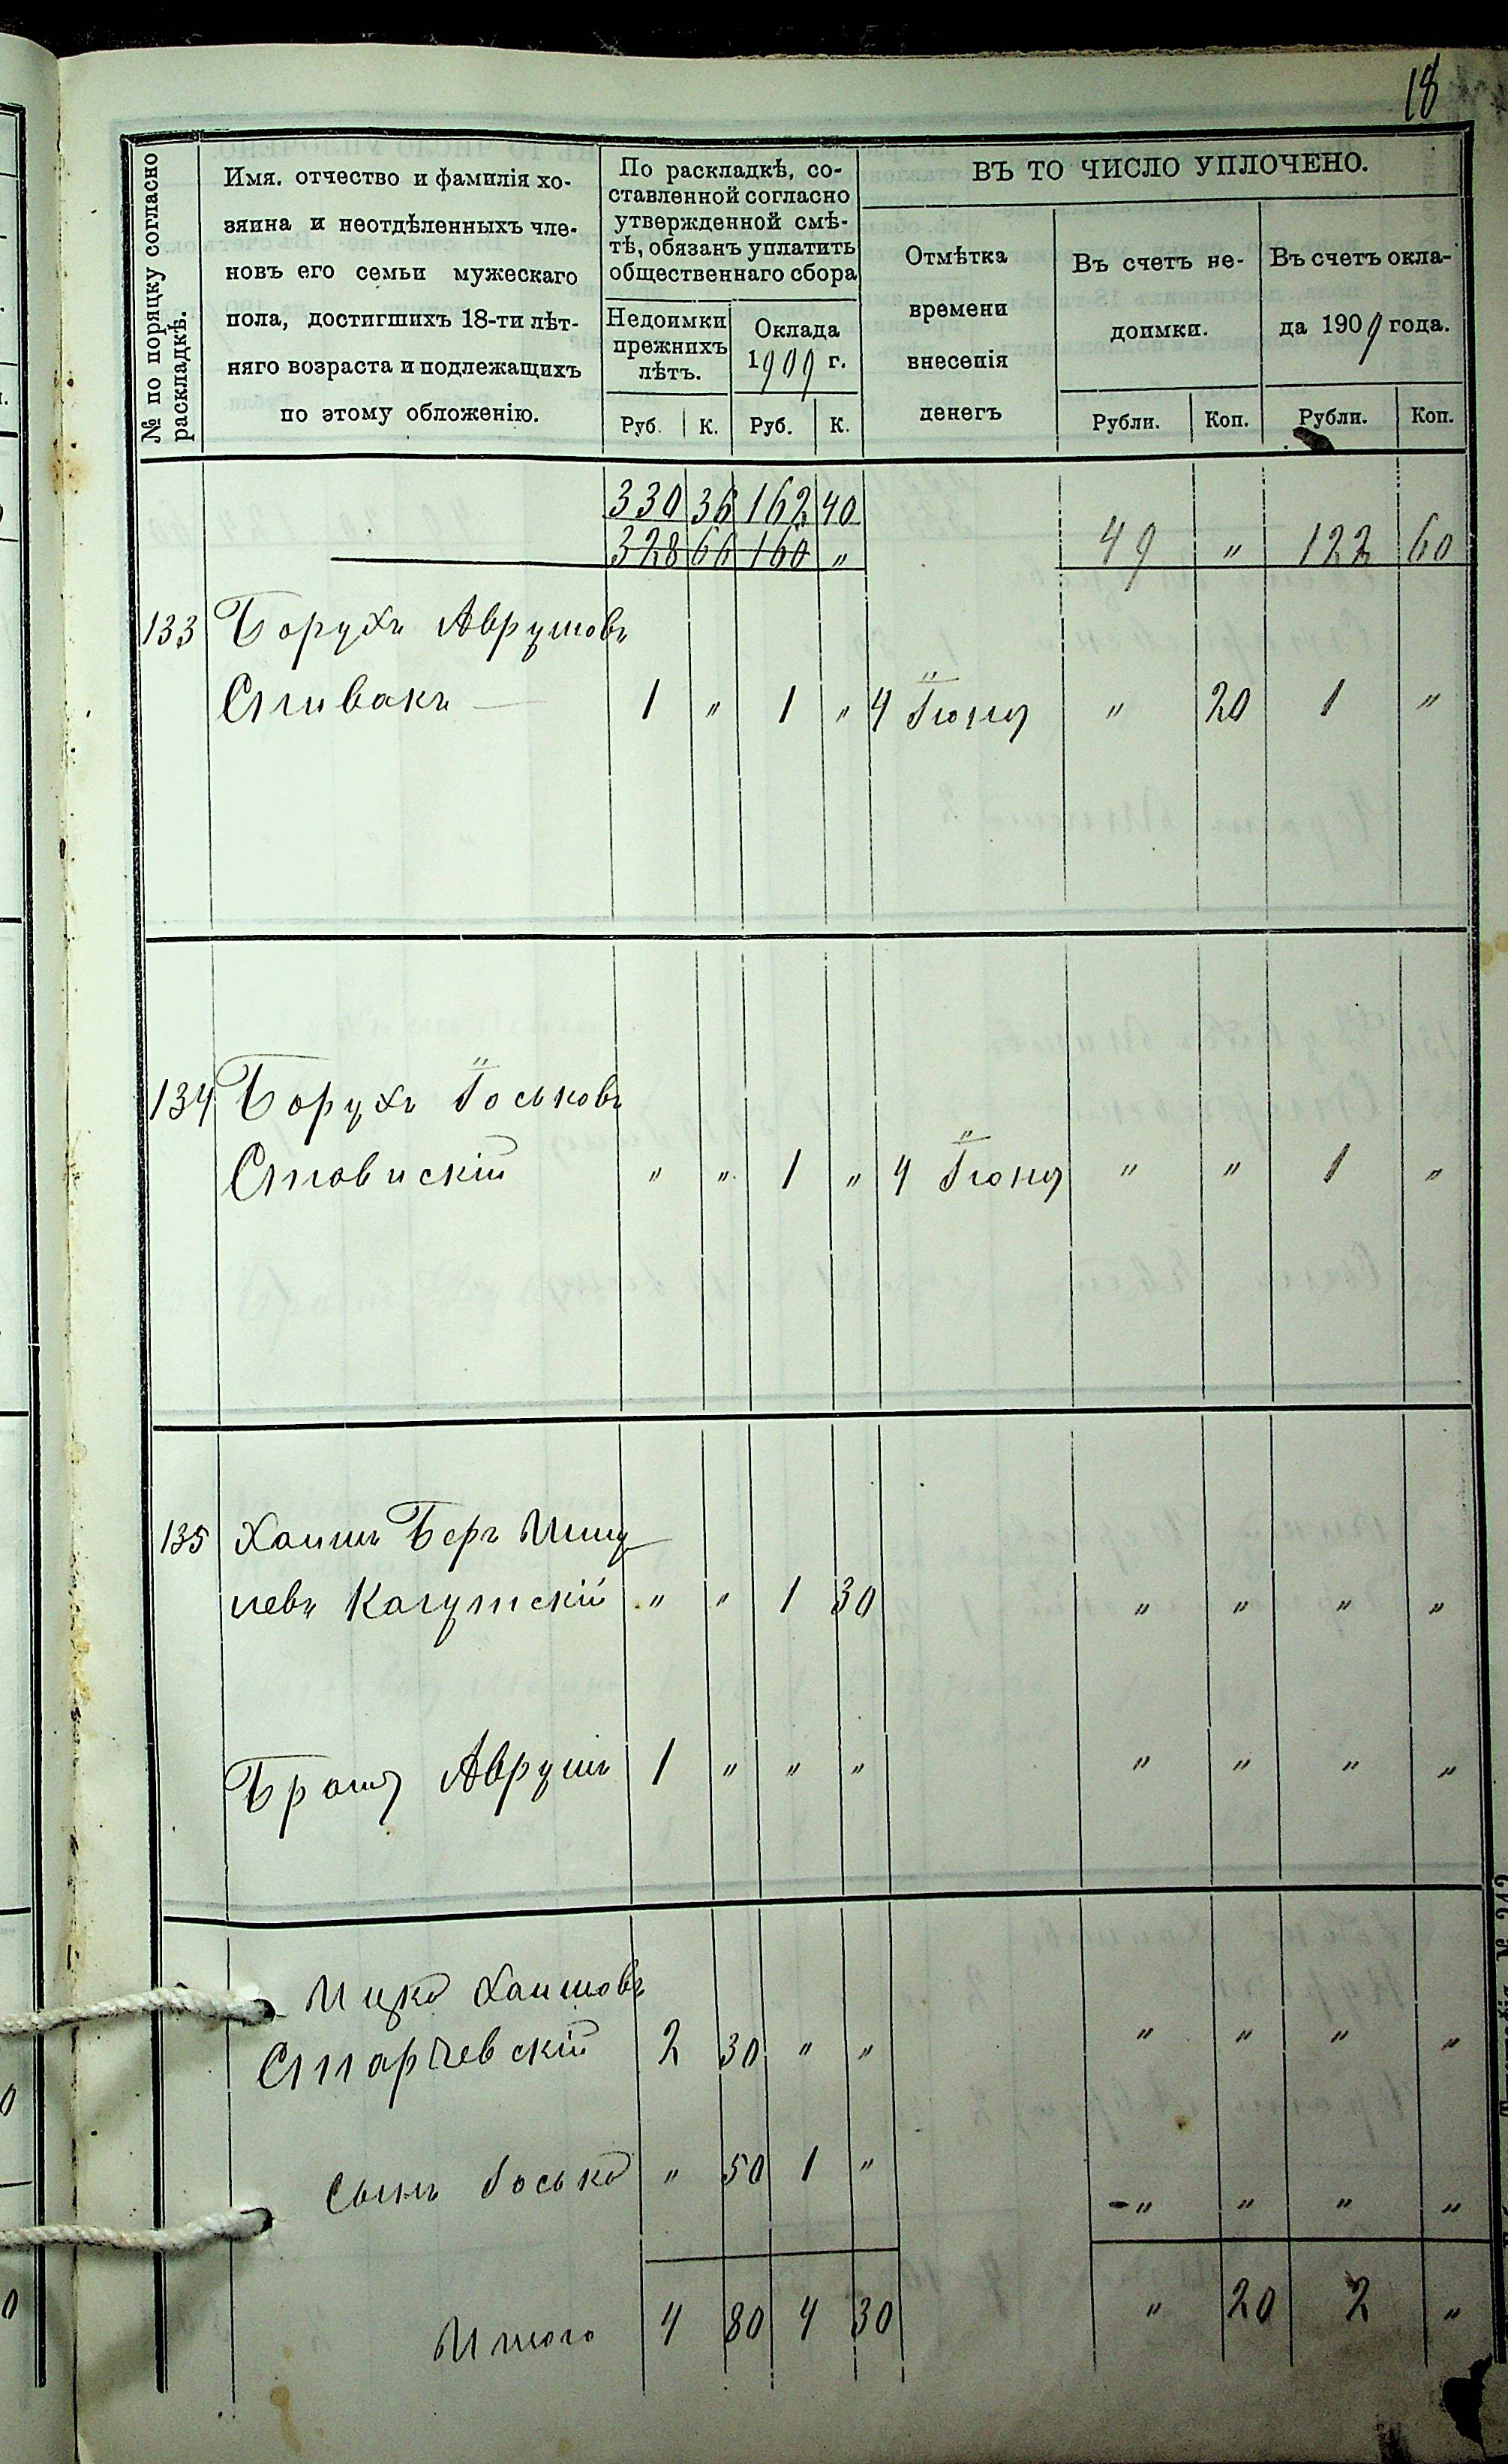 18
№ по порядку согласно раскладкѣ.
Имя. отчество и фамилія хо-
зяина и неотдѣленныхъ чле-
новъ его семьи мужескаго
пола, достигшихъ 18-ти лѣт-
няго возраста и подлежащихъ
по этому обложенію.
По раскладкѣ, со-
ставленной согласно
утвержденной смѣ-
тѣ, обязанъ уплатить
общественнаго сбора
Недоимки
прежнихъ
лѣтъ.
Оклада
1909 г.
Руб. К. Руб. К.
ВЪ ТО ЧИСЛО УПЛОЧЕНО.
Отмѣтка
времени
внесенія
денегъ
Въ счетъ не-
доимки.
Въ счетъ окла-
да 1909 года.
Рубли. Коп. Рубли. Коп.
330 36 162 40
328 66 160 " 49 " 122 60
133 Борухъ Аврумовъ
Спивакъ 1 " 1 " 4 Іюня " 20 1 "
134 Борухъ Іоськовъ
Ставискій " " 1 " 4 Іюня " " 1 "
135 Хаимъ Беръ
левъ " " 1 30 " " " "
Братъ Аврумъ 1 " " " " " " "
Ицко Хаимовъ
Старчевскій 2 30 " " " " " "
Сынъ Іосько " 50 1 " " " " "
Итого 4 80 4 30 " 20 2 "